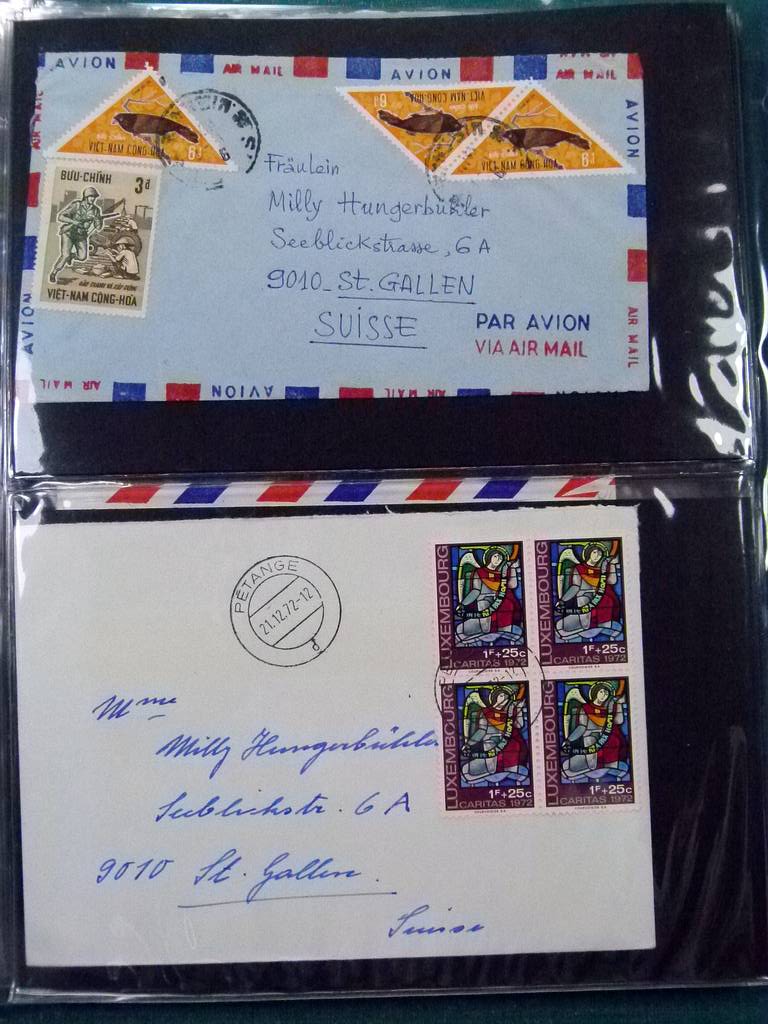 AVION AIR MAIL AVION AIR MAIL
AVION
6đ VIỆT-NAM CỘNG-HÒA
6đ VIỆT-NAM CỘNG-HÒA
VIỆT-NAM CỘNG-HÒA 6đ
BƯU-CHÍNH 3đ
VIỆT-NAM CỘNG-HÒA
Fräulein
Milly Hungerbühler
Seeblickstrasse, 6A
9010-St. GALLEN
SUISSE
PAR AVION
VIA AIR MAIL
AIR MAIL
AVION
AIR MAIL AIR MAIL AVION AIR MAIL
PÉTANGE
21.12.72-12
LUXEMBOURG
1F+25c
CARITAS 1972
LUXEMBOURG
1F+25c
CARITAS 1972
LUXEMBOURG
1F+25c
CARITAS 1972
LUXEMBOURG
1F+25c
CARITAS 1972
Mme
Milly Hungerbühler
Seeblickstr. 6A
9010 St. Gallen.
Suisse